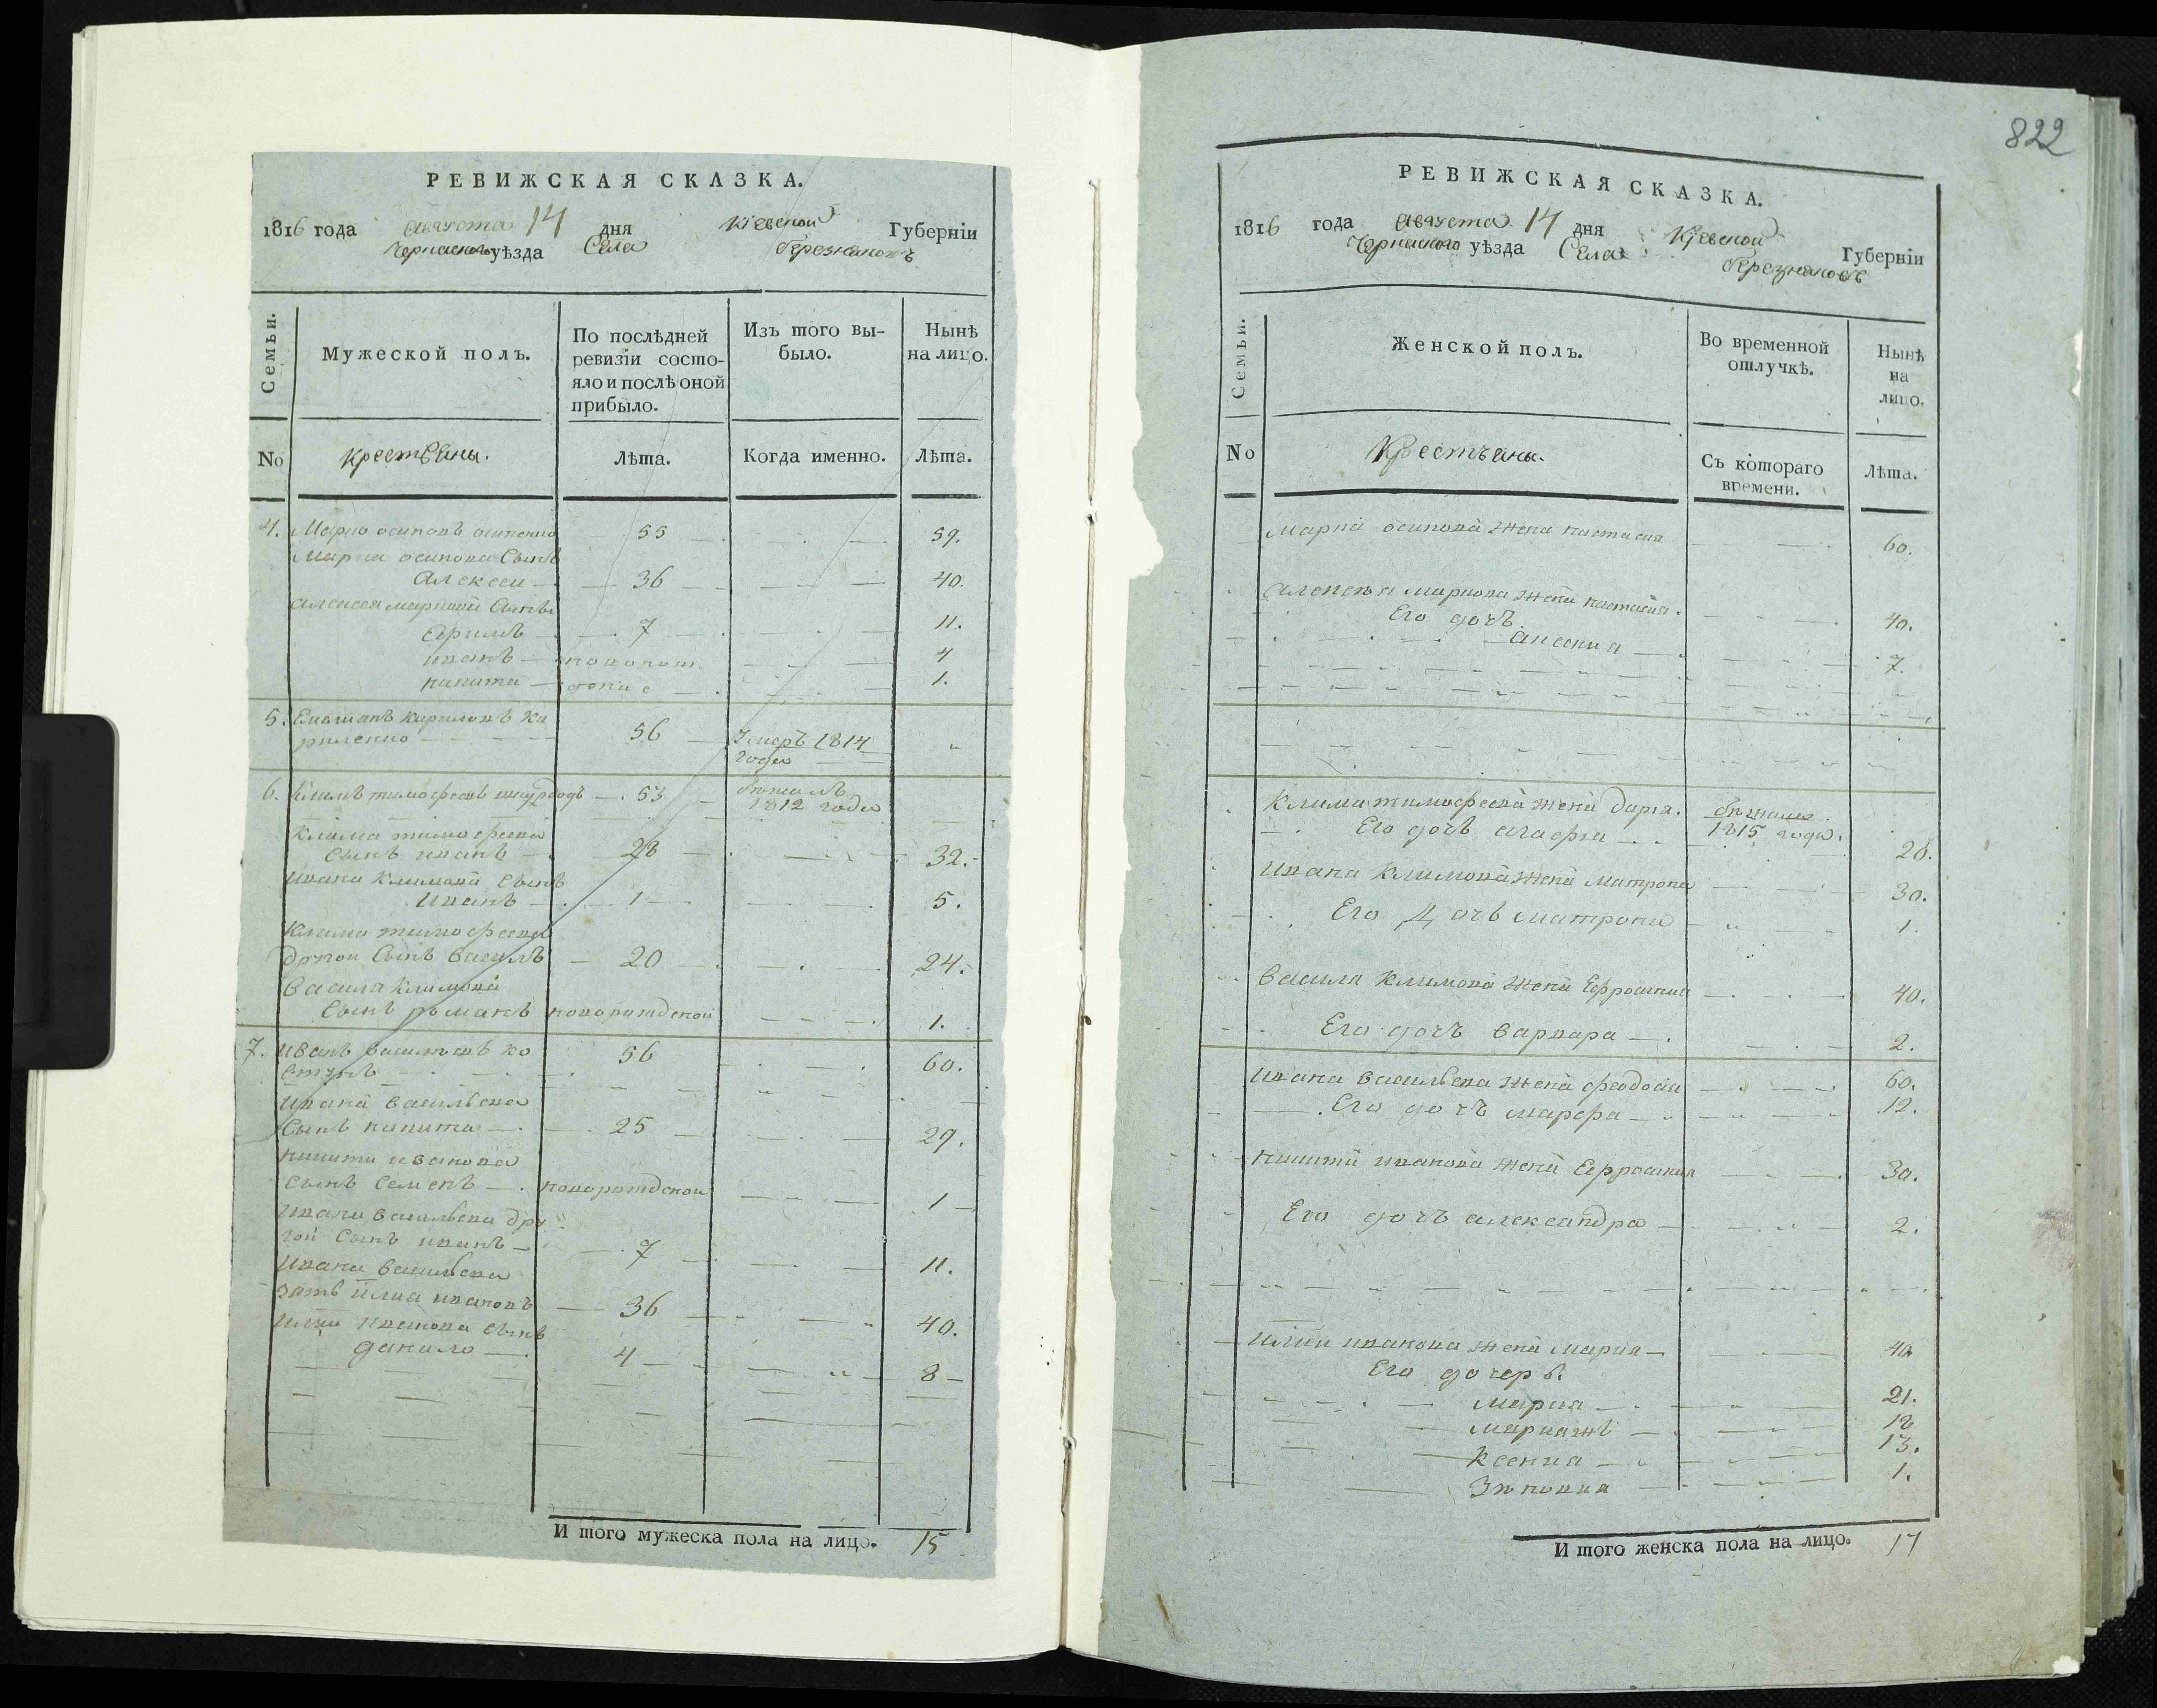 РЕВИЖСКАЯ СКАЗКА.
1816 года августа 14 дня Кіевской Губерніи
Черкаскогоуѣзда Села березняковъ
Семьи.
Мужеской полъ.
По послѣдней
ревизіи состо-
яло и послѣ оной
прибыло.
Изъ того вы-
было.
Нынѣ
на лицо.
No крестьяны. Лѣта. Когда именно. Лѣта.
4. Марко осиповъ осипенко 55 59.
Марка осипова Сынъ
алексеи 36 40.
алексея маркова Сынъ
Ефимъ 7 11.
иванъ 4
никита 1.
5. кириловъ Ки
риленко 56 Умеръ 1814
года
6. Климъ тимофеевъ 53 бежалъ
1812 года
Клима тимофеева
Сынъ иванъ 28 32.
ивана Климова Сынъ
Иванъ 1 5.
Клима тимофеева
другои Сынъ василъ 20 24.
василя Климова
Сынъ романъ новорождэной 1.
7. иванъ васильевъ ко
втунъ 56 60.
ивана васильева
Сынъ никита 25 29.
никити иванова
Сынъ Семенъ новорождэной 1
ивана васильева дру
гои Сынъ иванъ 7 11.
ивана васильева
зять илиа ивановъ 36 40.
илии иванова Сынъ
данило 4 8
И того мужеска пола на лицо. 15
822
РЕВИЖСКАЯ СКАЗКА.
1816 года августа 14 дня Кіевской Губерніи
Черкаского уѣзда Села березняковъ
Семьи.
Женской полъ.
Во временной
отлучкѣ.
Нынѣ
на
лицо.
No Крестъяны. Съ котораго
времени. Лѣта.
марка осипова жена настасия 60.
алексея маркова жена настасия. 40.
Его дочъ
7.
Клима тимофеева жена Дария. бежала
Его дочъ агафия 1815 года. 20.
ивана Климова жена матрона 30.
Его Дочъ матрона 1.
василя Климова жена Ефросиния 40.
Его дочъ варвара 2.
ивана васильева жена феодосия 60.
Его дочъ марфа 12.
никити иванова жена Ефросиния 30.
Его дочъ александра 2.
илии иванова жена мария 40
Его дочеръ.
мария 21.
18
ксения 13.
1.
И того женска пола на лицо. 17